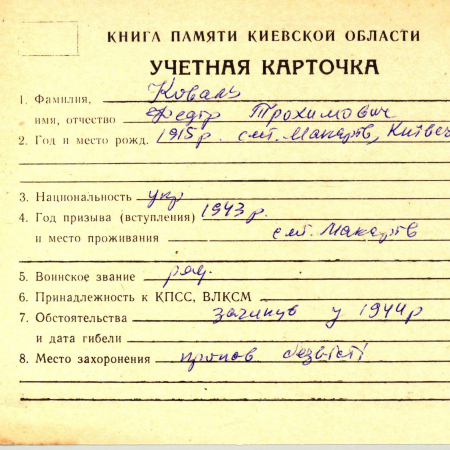 КНИГА ПАМЯТИ КИЕВСКОЙ ОБЛАСТИ
УЧЕТНАЯ КАРТОЧКА
1. Фамилия, Коваль
имя, отчество Федір Трохимович
2. Год и место рожд. 1915р. смт. Макарів, Київсь
3. Национальность укр
4. Год призыва (вступления) 1943 р.
и место проживания смт. Макарів
5. Воинское звание ряд.
6. Принадлежность к КПСС, ВЛКСМ
7. Обстоятельства загинув у 1944р
и дата гибели
8. Место захоронения пропав безвісті